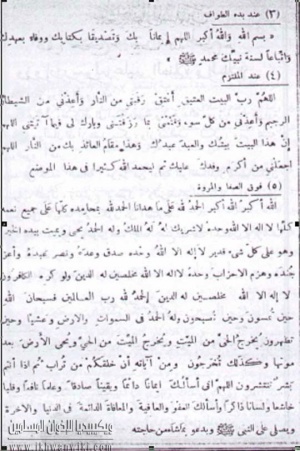 (٣) عند بدء الطواف
« بسم الله والله أكبر اللهم إيمانا بك وتصديقا بكتابك ووفاء بعهدك
واتباعا لسنة نبيك محمد ﷺ »
(٤) عند الملتزم
اللهم رب البيت العتيق أعتق رقبتي من النار وأعذني من الشيطان
الرجيم وأعذني من كل سوء وقنعني بما رزقتني وبارك لي فيما آتيتني اللهم
إن هذا البيت بيتك والعبد عبدك وهذا مقام العائذ بك من النار اللهم
اجعلني من أكرم وفدك عليك ثم ليحمد الله كثيرا في هذا الموضع
(٥) فوق الصفا والمروة
الله أكبر الله أكبر الحمد لله على ما هدانا الحمد لله بمحامده كلها على جميع نعمه
كلها لا إله إلا الله وحده لا شريك له له الملك وله الحمد يحيي ويميت بيده الخير
وهو على كل شيء قدير لا إله إلا الله وحده صدق وعده ونصر عبده وأعز
جنده وهزم الأحزاب وحده لا إله إلا الله مخلصين له الدين ولو كره الكافرون
لا إله إلا الله مخلصين له الدين الحمد لله رب العالمين فسبحان الله
حين تمسون وحين تصبحون وله الحمد في السموات والأرض وعشيا وحين
تظهرون يخرج الحي من الميت ويخرج الميت من الحي ويحيي الأرض بعد
موتها وكذلك تخرجون ومن آياته أن خلقكم من تراب ثم إذا أنتم
بشر تنتشرون اللهم إني أسألك إيمانا دائما ويقينا صادقا وعلما نافعا وقلبا
خاشعا ولسانا ذاكرا وأسألك العفو والعافية والمعافاة الدائمة في الدنيا والآخرة
ويصلى على النبي ﷺ ويدعو بما شاء من حاجته
ويكيبيديا الإخوان المسلمين
www.ikhwanwiki.com